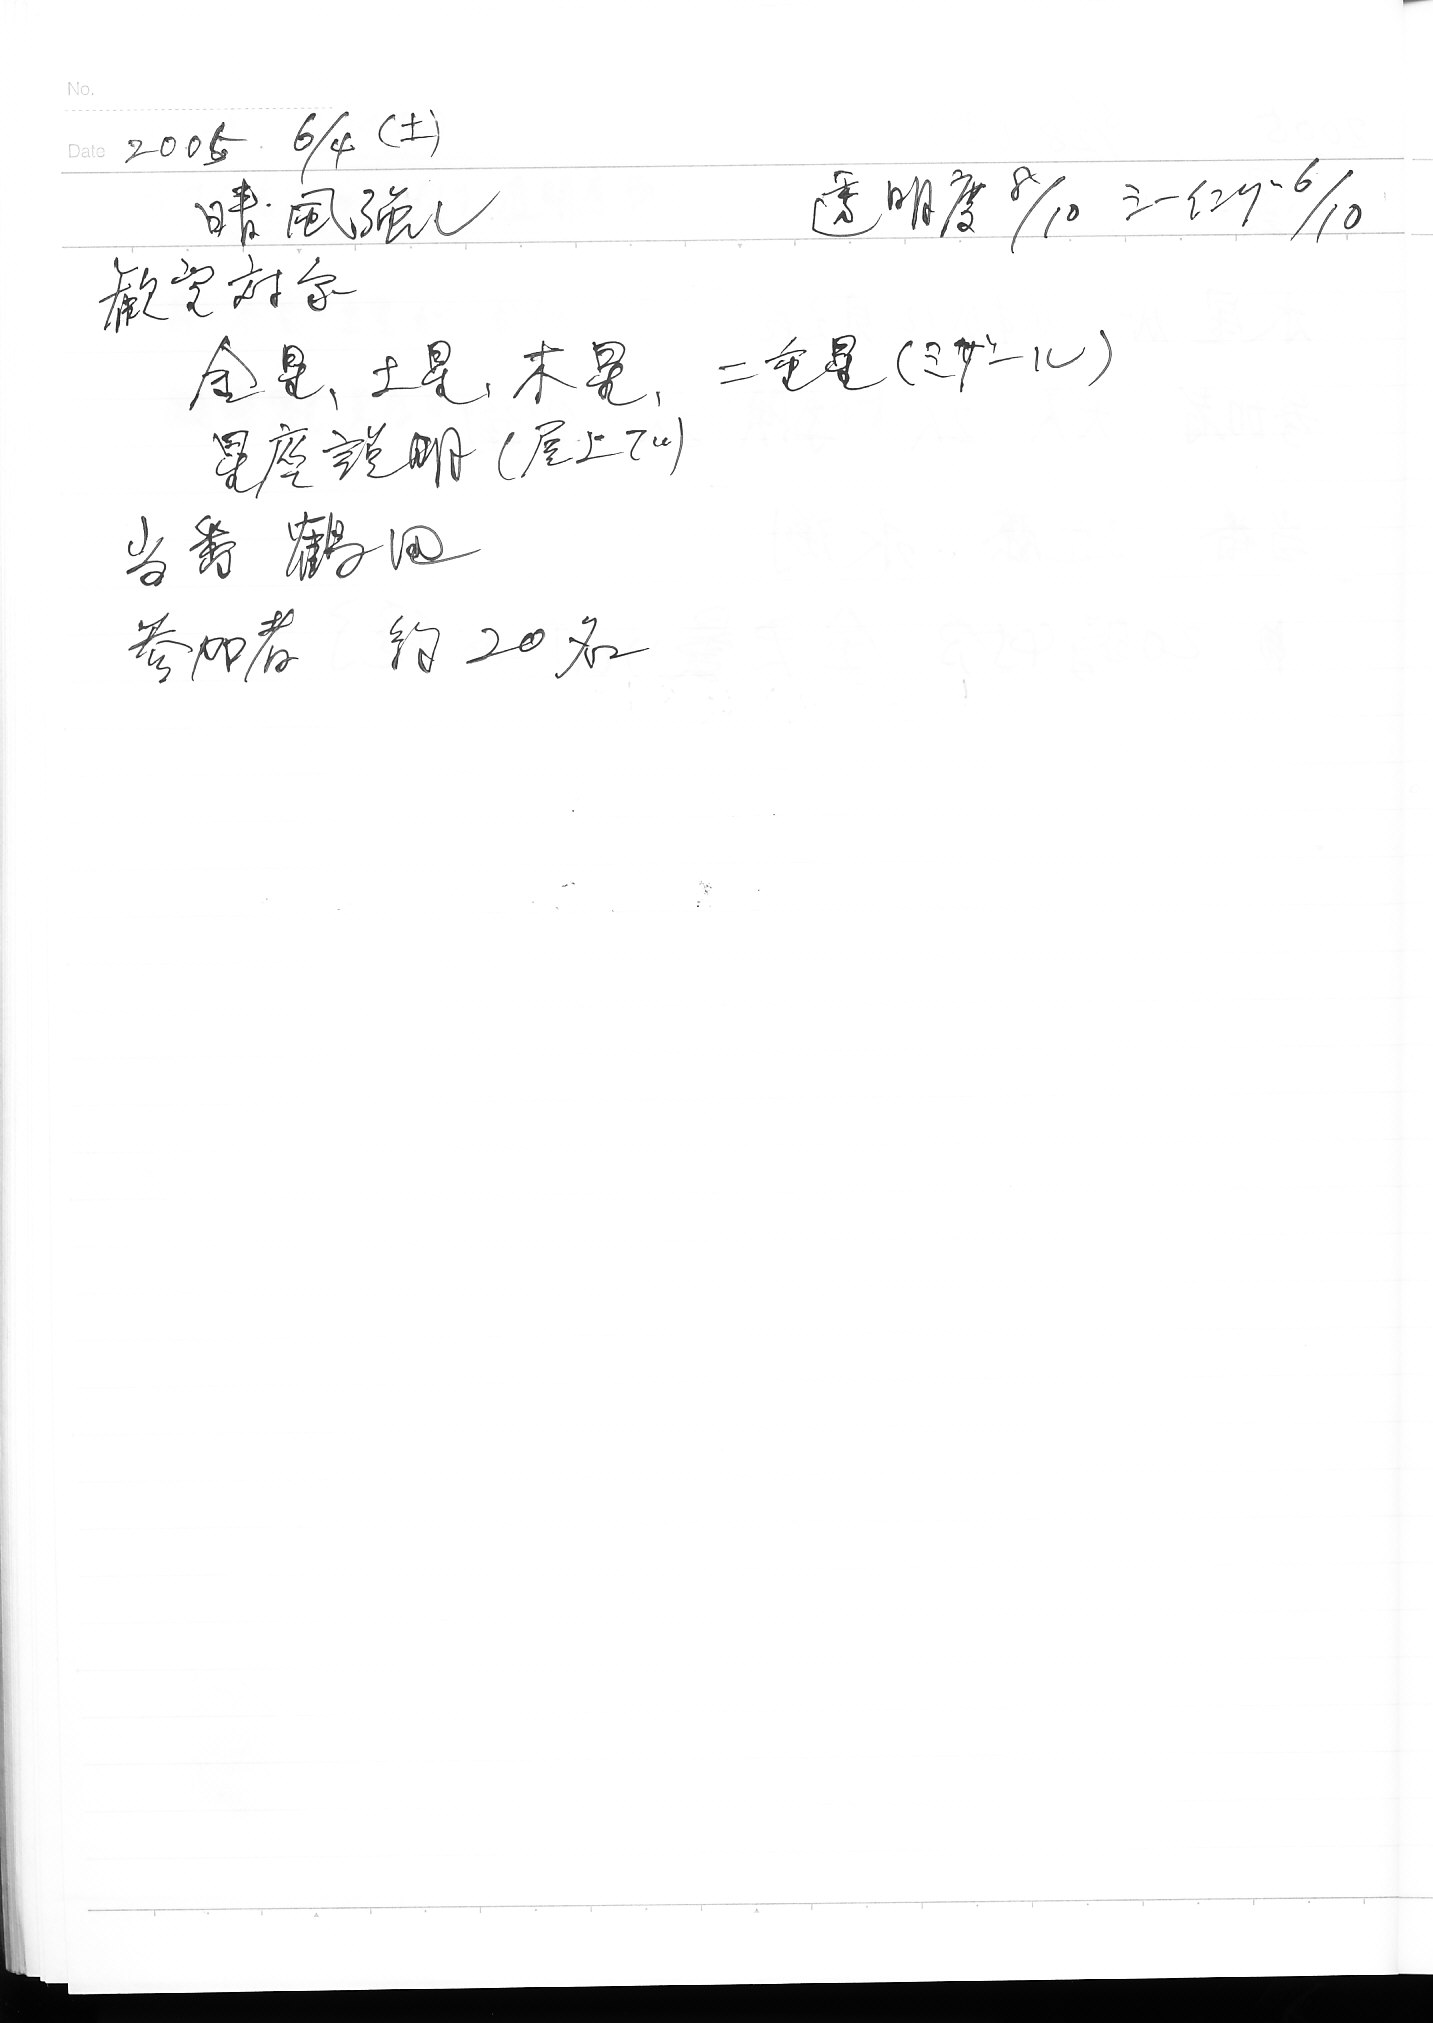 No.
Date 2005 6/4 (土)
晴 風強し 透明度 8/10 シーイング 6/10
観望対象
金星、土星、木星、二重星(ミザール)
星座説明(屋上で)
当番 鶴田
参加者 約20名